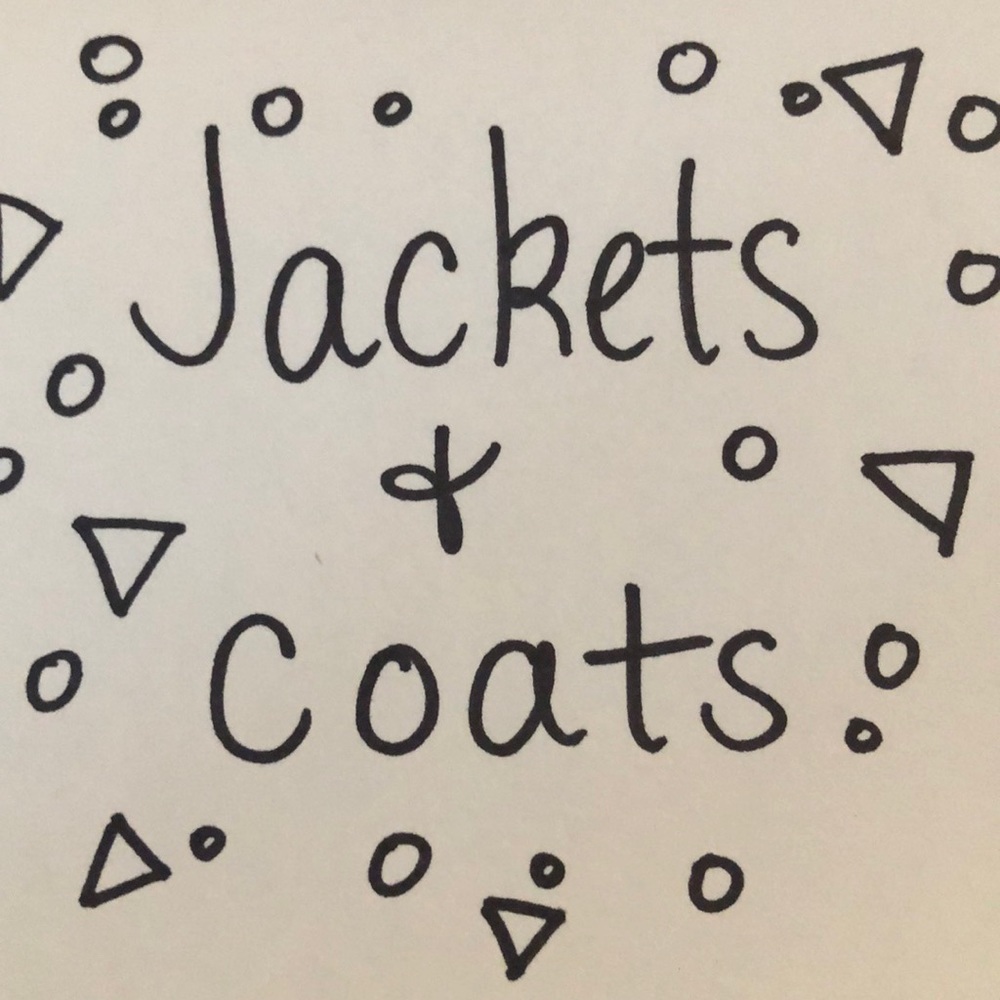 Jackets
&
Coats